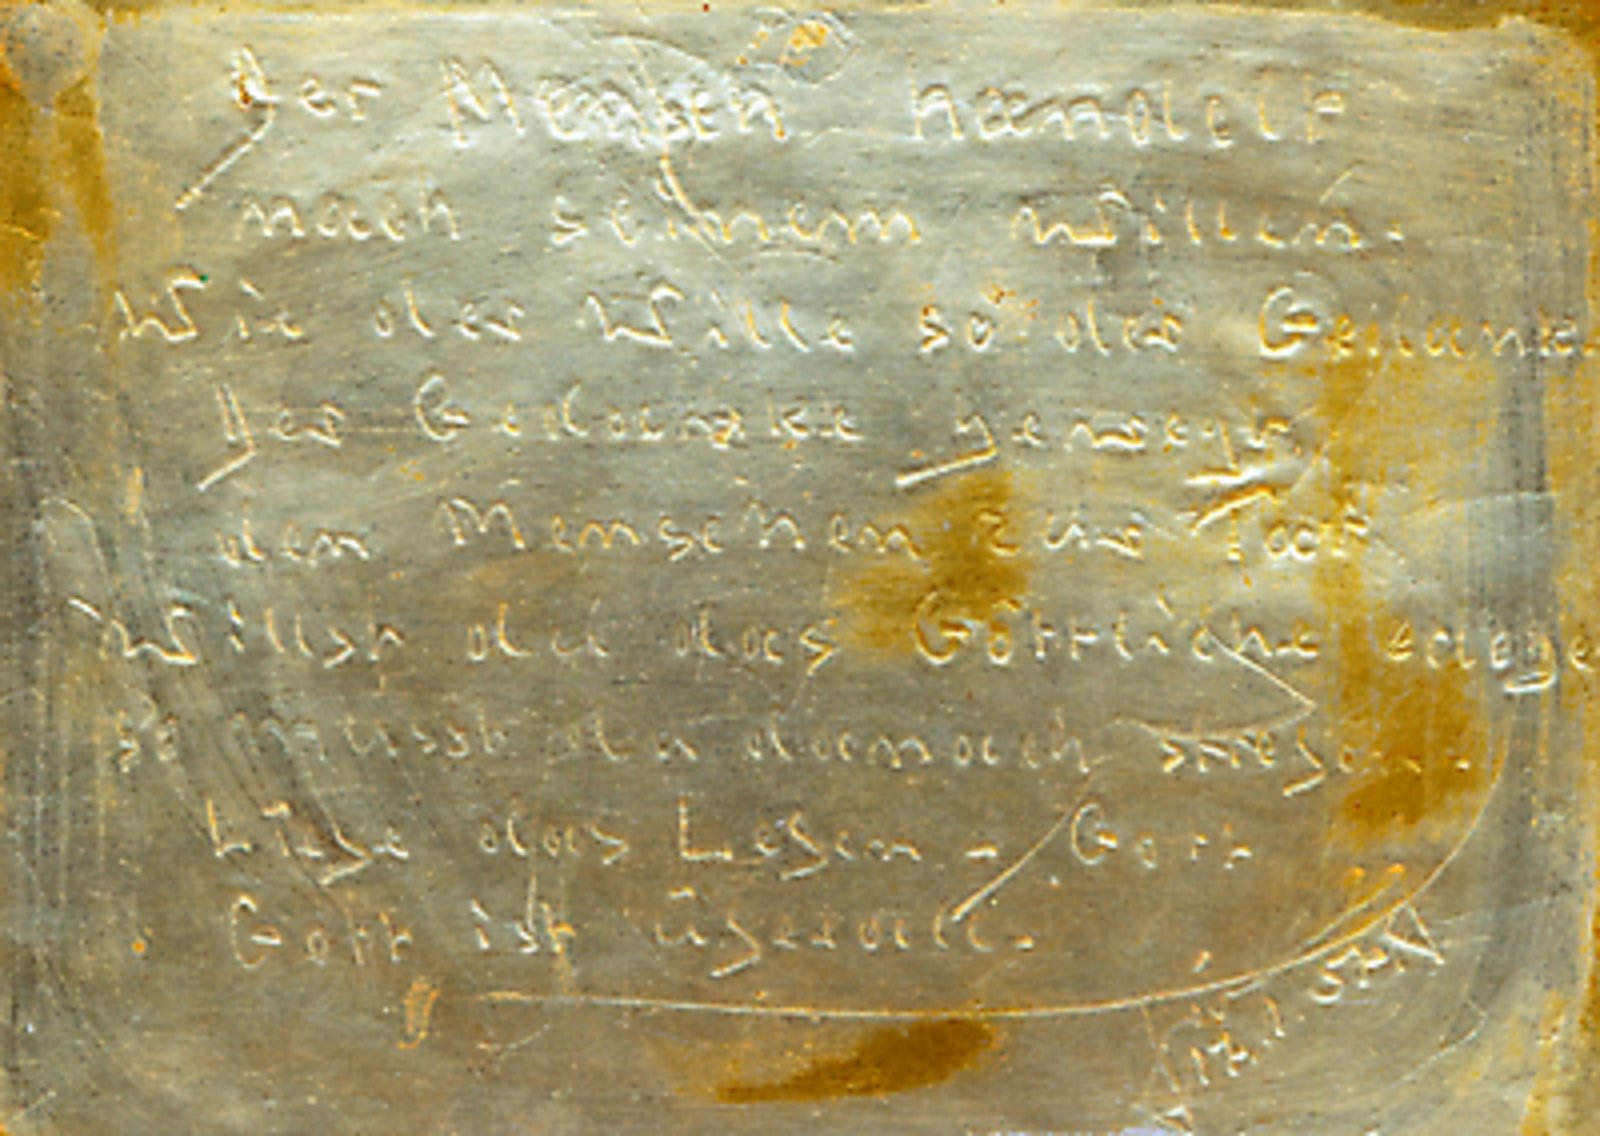 Der Mensch handelt
nach seinem Willen.
Wie der Wille so der Gedanke
Der Gedanke bewegt
den Menschen zur Tat
Willst du das Göttliche
so musst du danach streben.
Liebe das Leben - Gott
Gott ist überall.